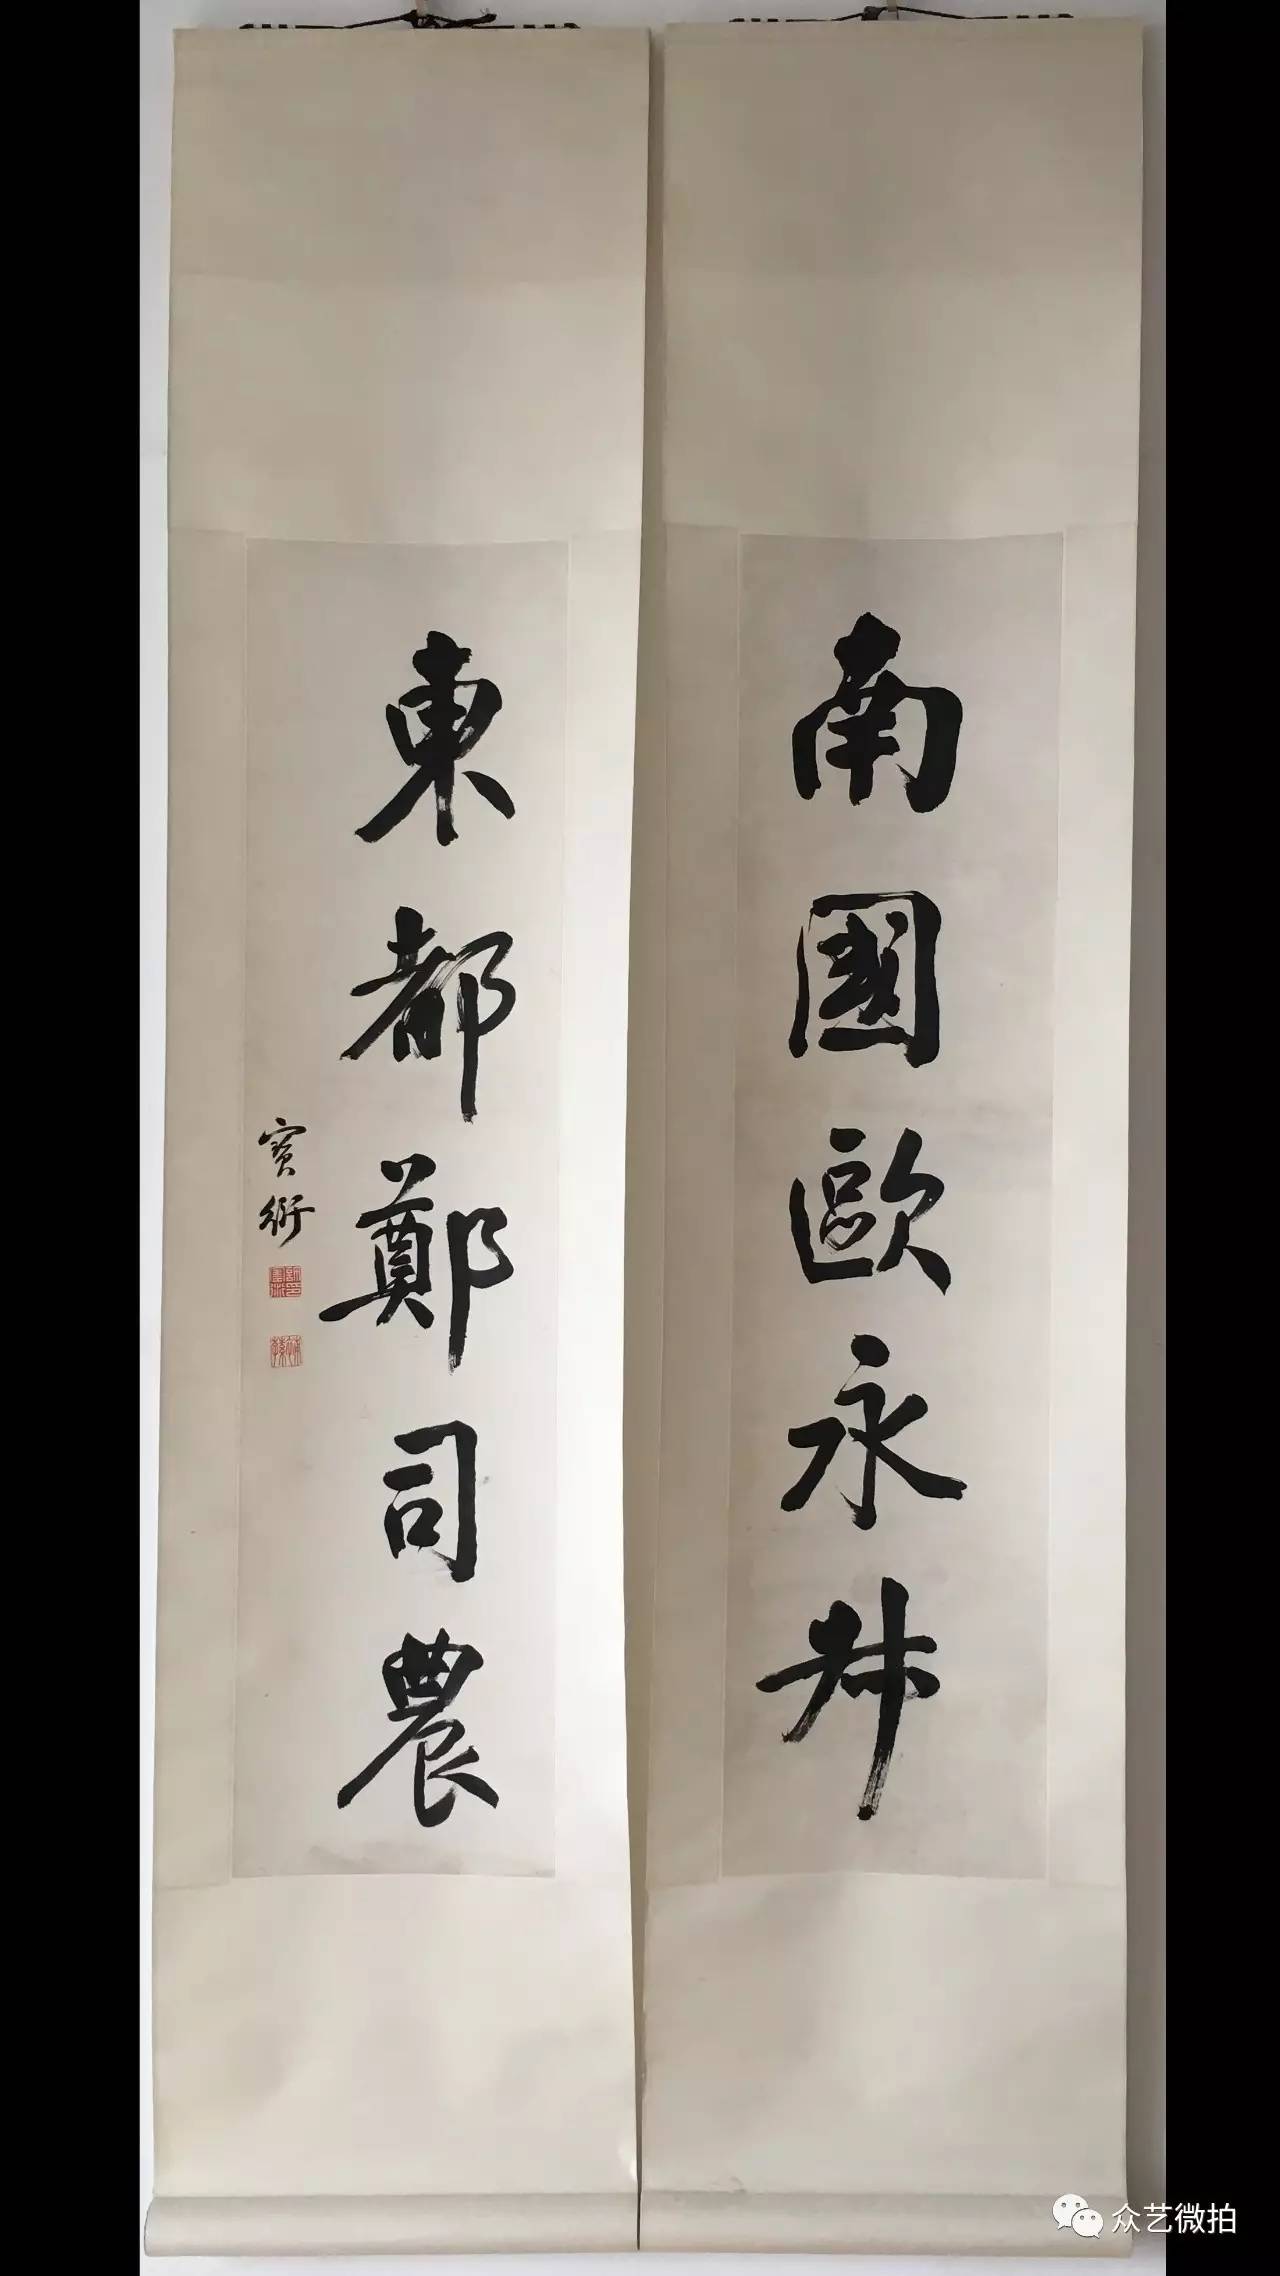 南國歐永叔
東都鄭司農
寶衍
众艺微拍